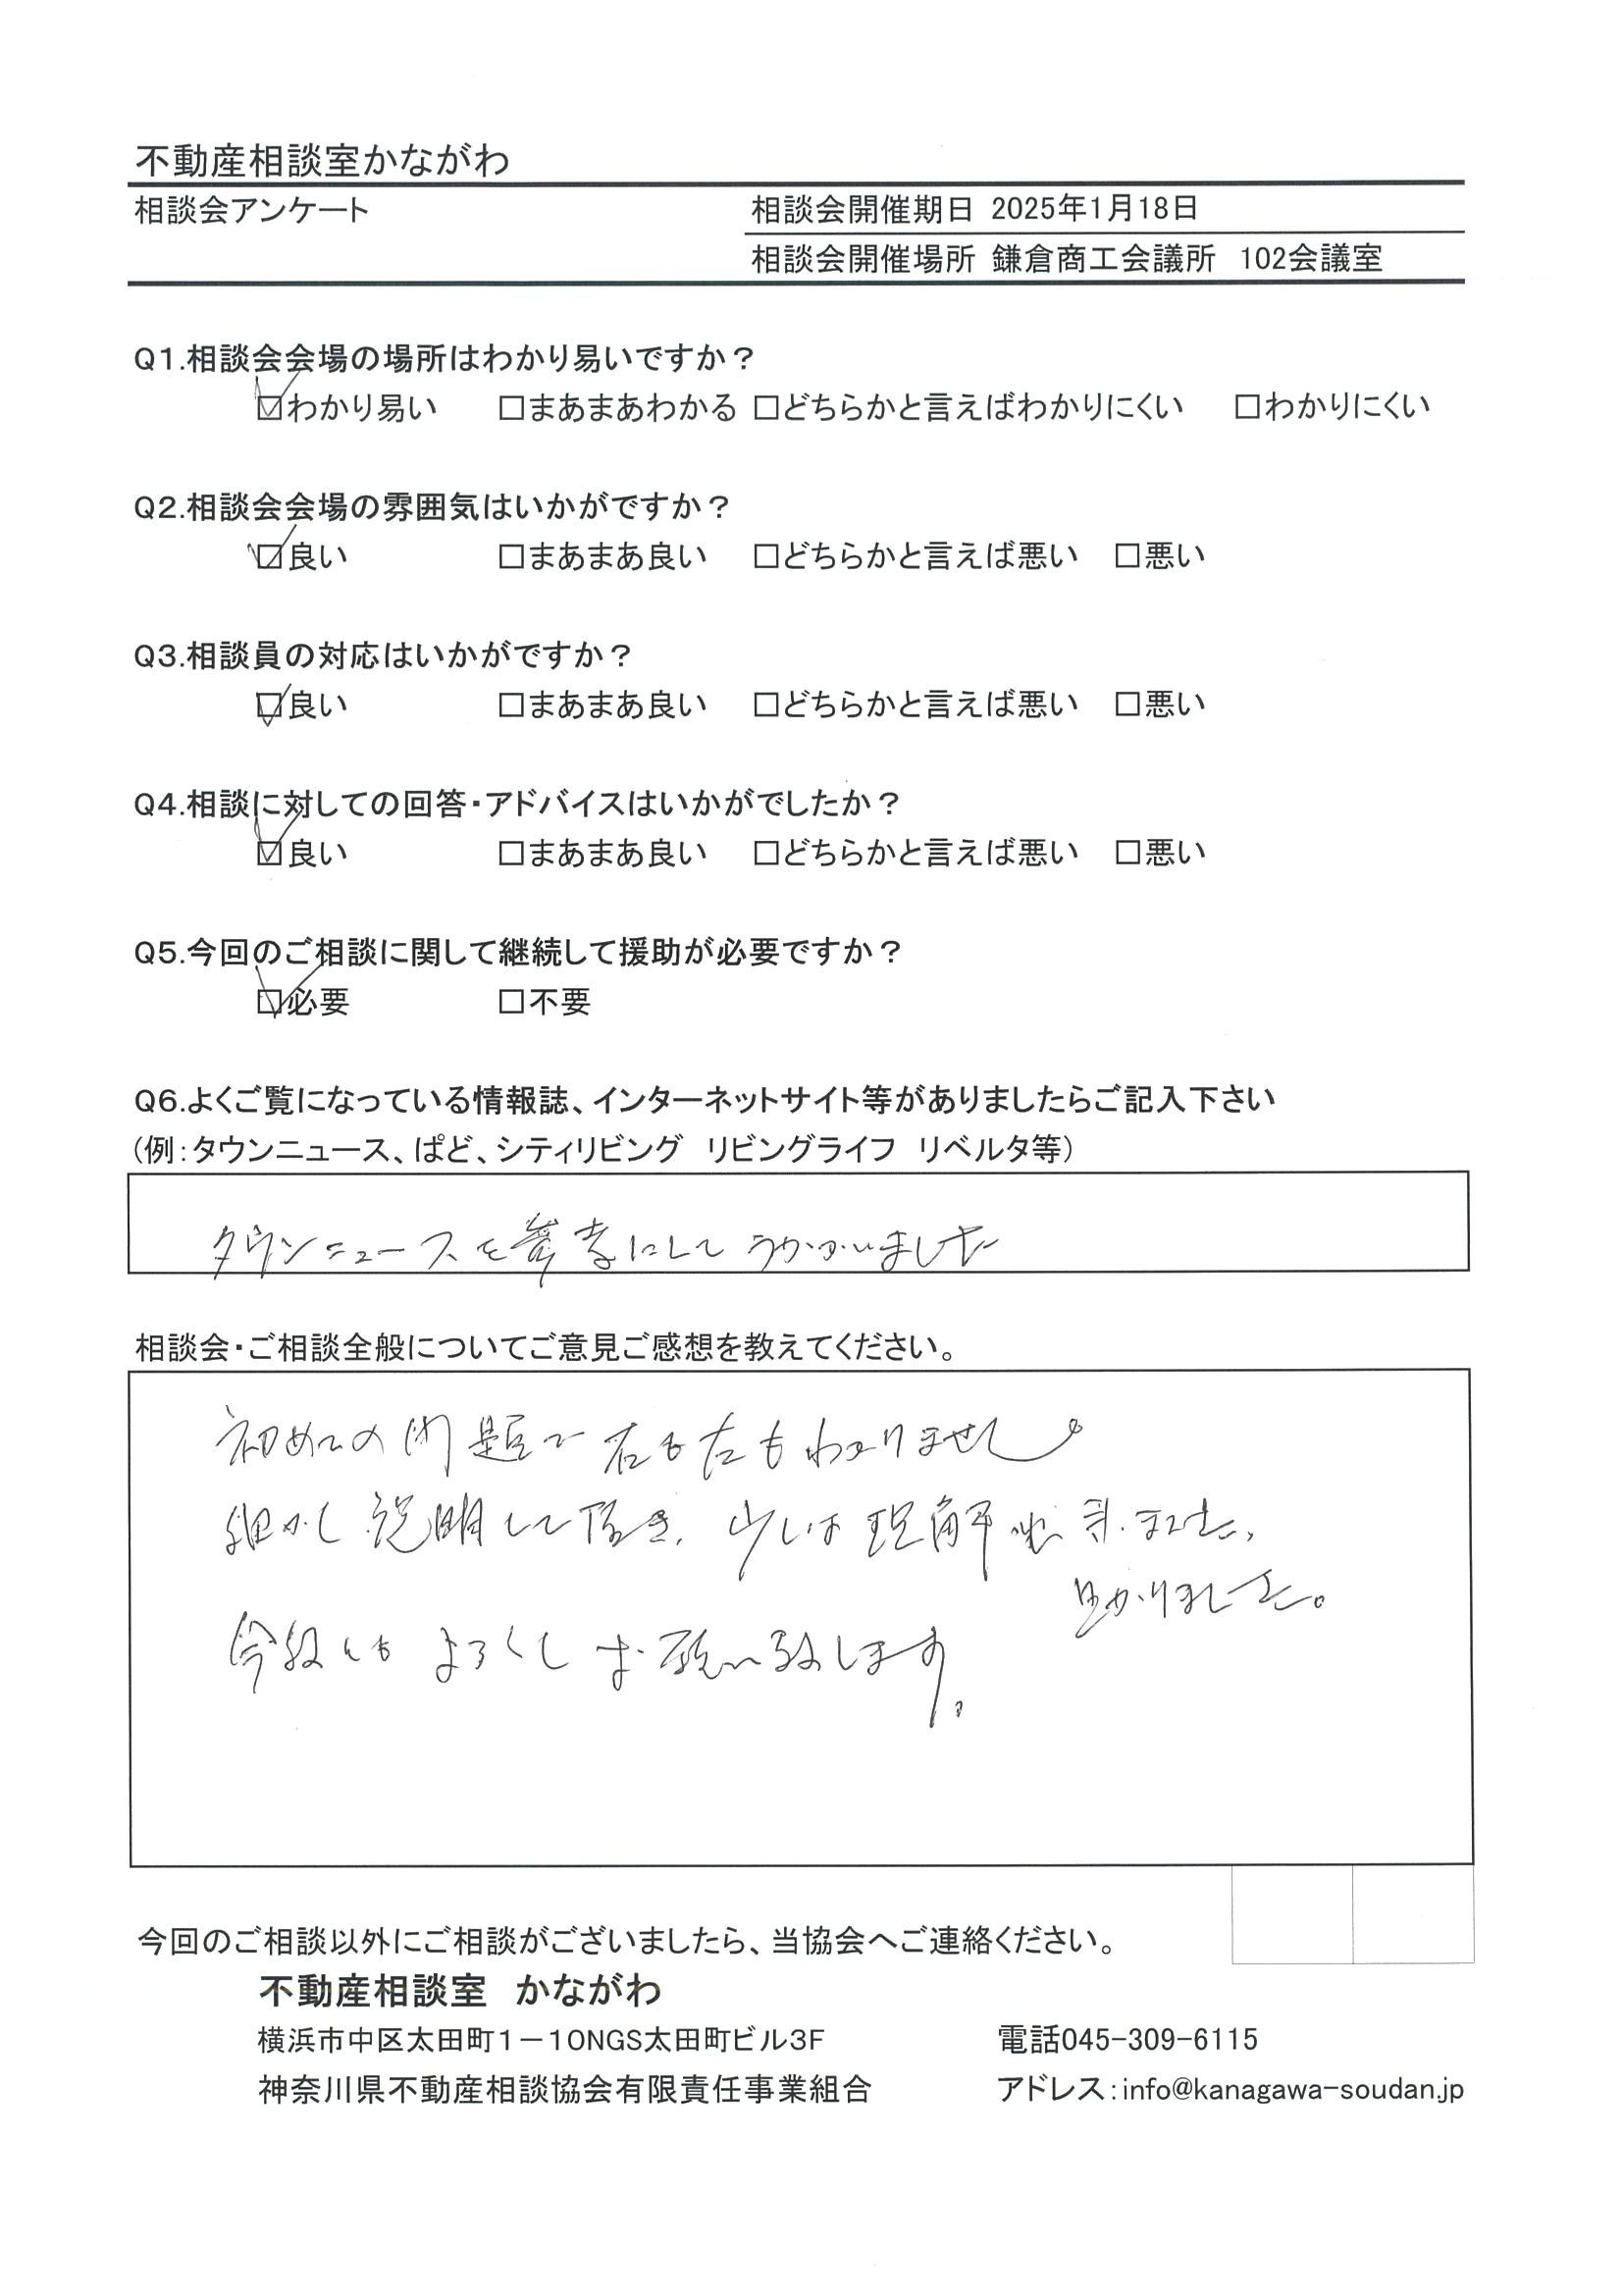 不動産相談室かながわ
相談会アンケート
相談会開催期日 2025年1月18日
相談会開催場所 鎌倉商工会議所 102会議室
Q1.相談会会場の場所はわかり易いですか？
☑わかり易い □まあまあわかる □どちらかと言えばわかりにくい □わかりにくい
Q2.相談会会場の雰囲気はいかがですか？
☑良い □まあまあ良い □どちらかと言えば悪い □悪い
Q3.相談員の対応はいかがですか？
☑良い □まあまあ良い □どちらかと言えば悪い □悪い
Q4.相談に対しての回答・アドバイスはいかがでしたか？
☑良い □まあまあ良い □どちらかと言えば悪い □悪い
Q5.今回のご相談に関して継続して援助が必要ですか？
☑必要 □不要
Q6.よくご覧になっている情報誌、インターネットサイト等がありましたらご記入下さい
(例：タウンニュース、ぱど、シティリビング リビングライフ リベルタ等)
タウンニュースを参考にしてうかがいました
相談会・ご相談全般についてご意見ご感想を教えてください。
初めての問題で右も左もわかりません。
細かく説明して頂き、少しは理解出来ました、
助かりました。
今後ともよろしくお願い致します。
今回のご相談以外にご相談がございましたら、当協会へご連絡ください。
不動産相談室 かながわ
横浜市中区太田町1－10NGS太田町ビル3F
電話045-309-6115
神奈川県不動産相談協会有限責任事業組合
アドレス：info@kanagawa-soudan.jp